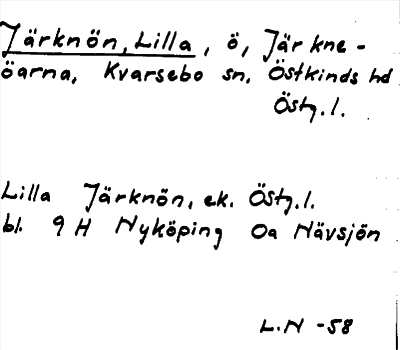 Järknön, Lilla, ö, Järkne-
öarna, Kvarsebo sn, Östkinds hd
Östg. l.
Lilla Järknön, ek. Östg. l.
bl. 9 H Nyköping Oa Nävsjön
L.N -58